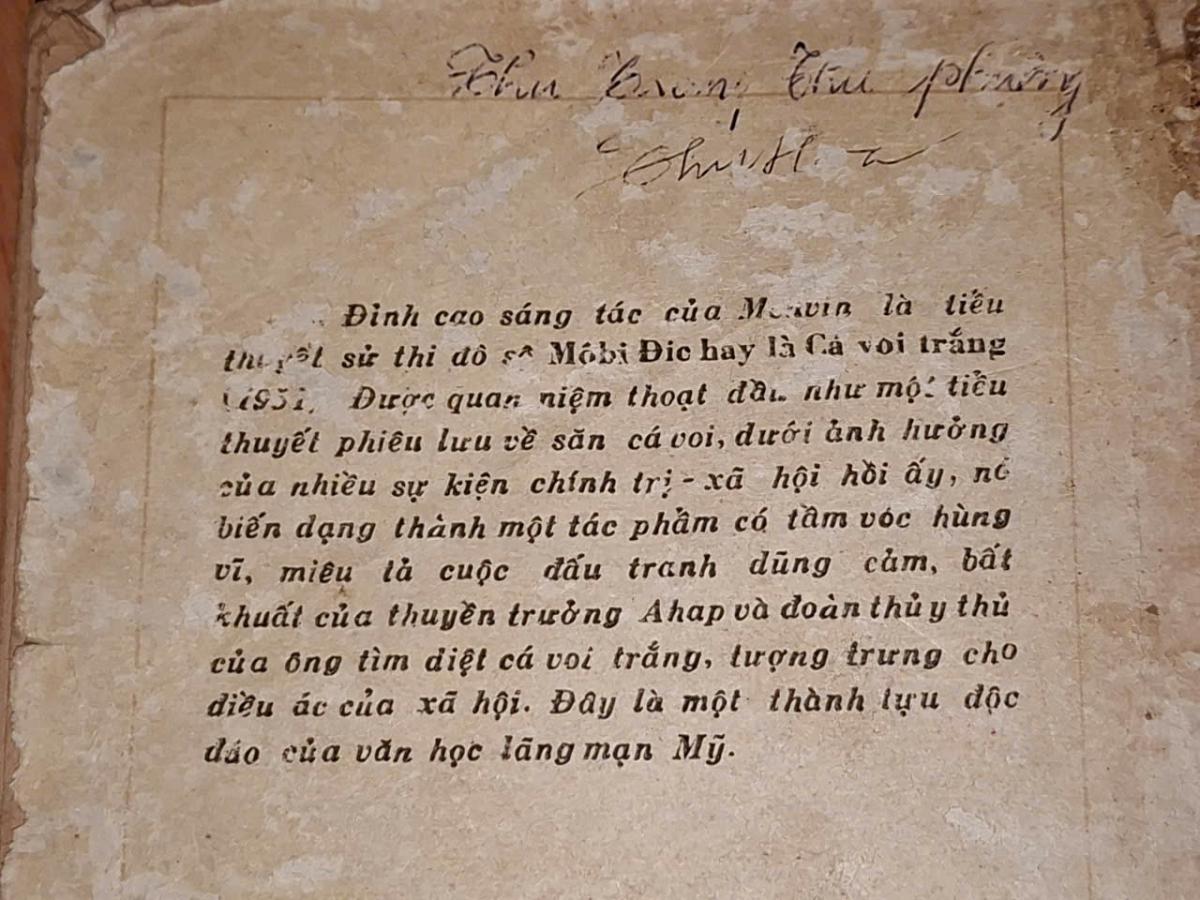 Thu Trang Thu Phương
Đỉnh cao sáng tác của Menvin là tiểu
thuyết sử thi đồ sộ Môbi Đic hay là Cá voi trắng
(1951) Được quan niệm thoạt đầu như một tiểu
thuyết phiêu lưu về săn cá voi, dưới ảnh hưởng
của nhiều sự kiện chính trị - xã hội hồi ấy, nó
biến dạng thành một tác phẩm có tầm vóc hùng
vĩ, miêu tả cuộc đấu tranh dũng cảm, bất
khuất của thuyền trưởng Ahap và đoàn thủy thủ
của ông tìm diệt cá voi trắng, tượng trưng cho
điều ác của xã hội. Đây là một thành tựu độc
đáo của văn học lãng mạn Mỹ.